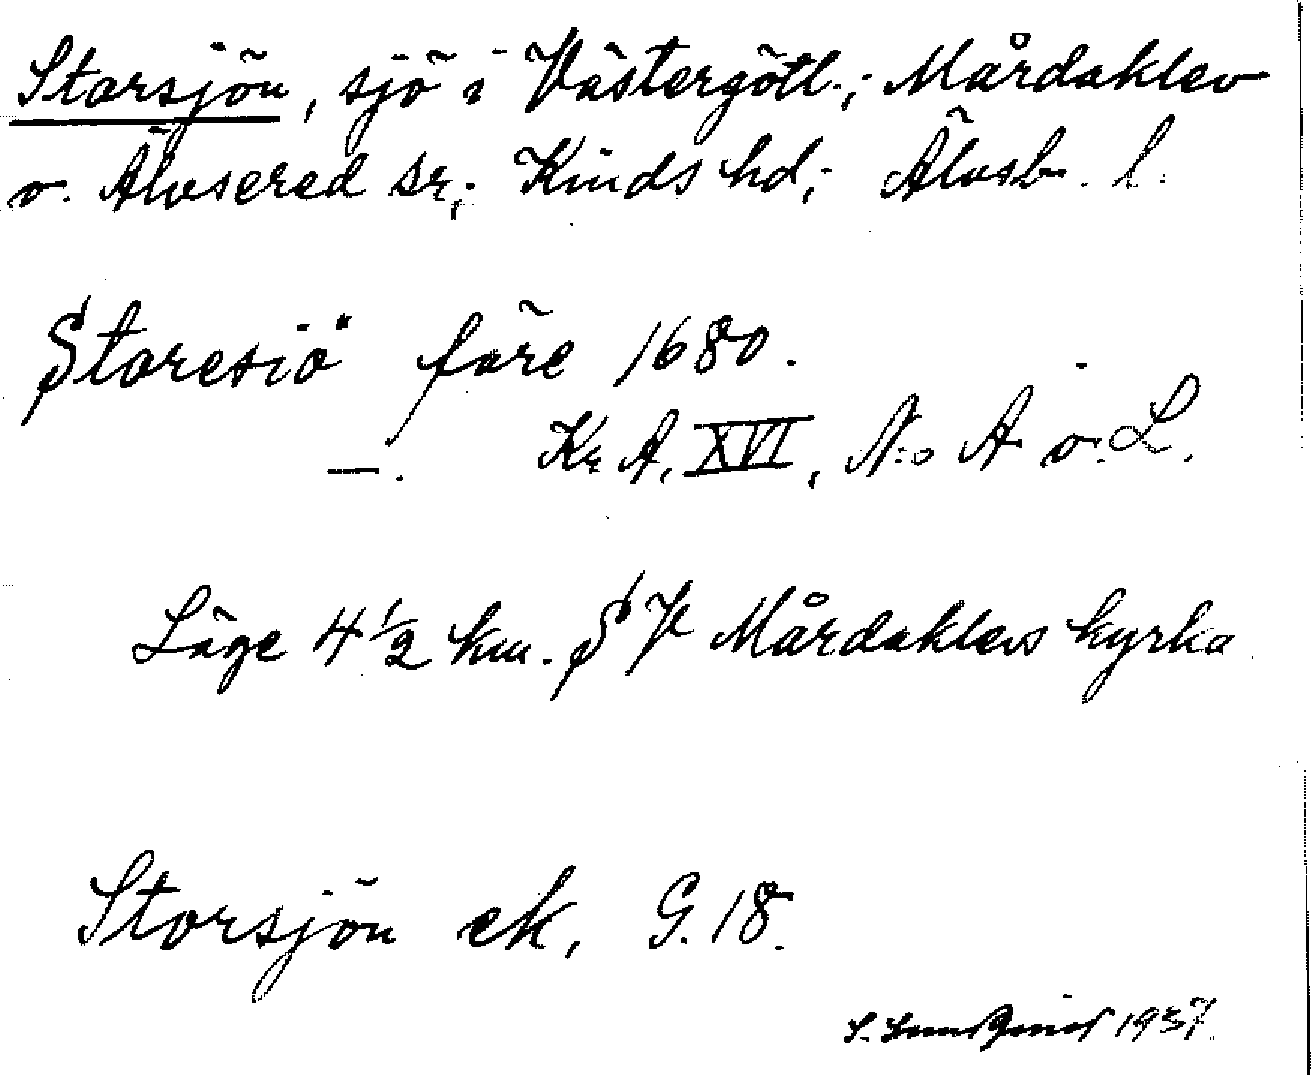 Storsjön, sjö i Västergötl.; Mårdaklev
o. Älvsered sr; Kinds hd; Älvsb. l.
Storesiö före 1680.
—. Kr A, XVI, N:o A o. L.
Läge 4 1/2 km. SV Mårdaklevs kyrka
Storsjön ek, G. 18.
1937